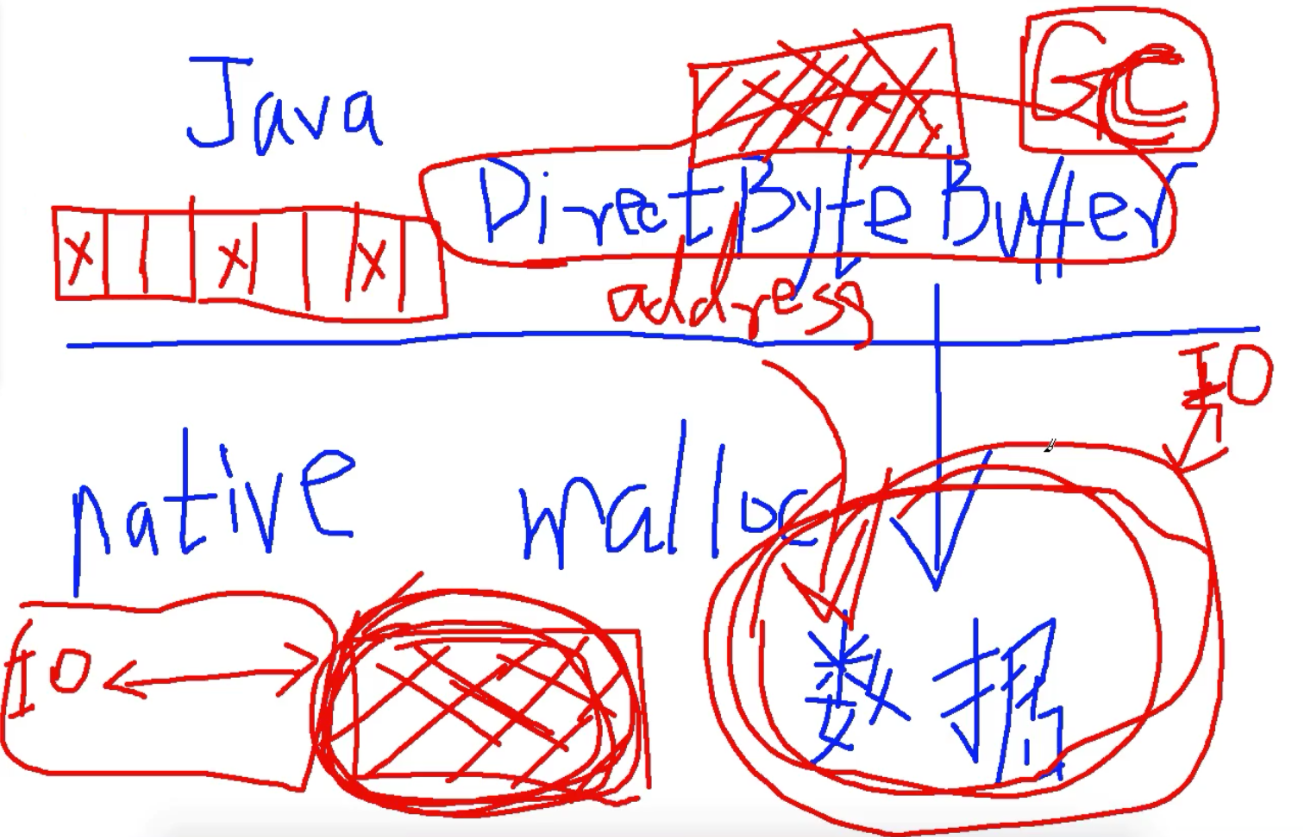 Java
GC
DirectByteBuffer
X X X
address
IO
native
malloc
IO
数据